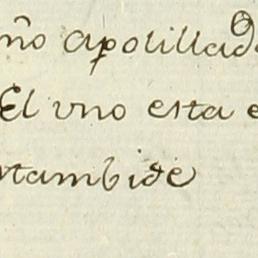 ño apolillad
El vno esta e
tambide